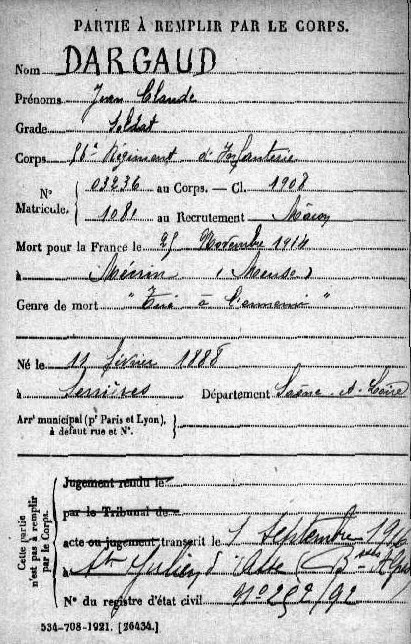 PARTIE À REMPLIR PAR LE CORPS.
Nom DARGAUD
Prénoms Jean Claude
Grade Soldat
Corps 56e Régiment d'Infanterie
N° Matricule. 03236 au Corps. — Cl. 1908
1081 au Recrutement Mâcon
Mort pour la France le 25 Novembre 1914
à (Meuse)
Genre de mort "Tué à l'ennemi"
Né le 11 février 1888
à Serrières Département Saône-et-Loire
Arrt municipal (pr Paris et Lyon), à défaut rue et N°.
Cette partie n'est pas à remplir par le Corps.
Jugement rendu le
par le Tribunal de
acte ou jugement transcrit le 1 Septembre
à St Julien d'Asse (Bsses Alpes)
N° du registre d'état civil N°
534-708-1921. [26434.]